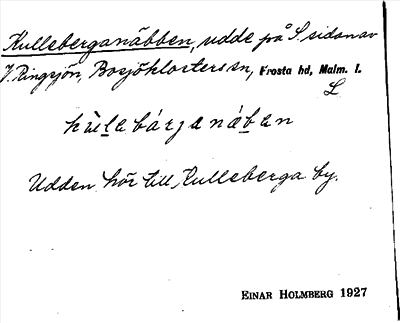 Kulleberganäbben, udde på S. sidan av
V. Ringsjön, Bosjöklosters sn, Frosta hd, Malm. l.
L
kùlabárjanában
Udden hör till Kulleberga by.
EINAR HOLMBERG 1927